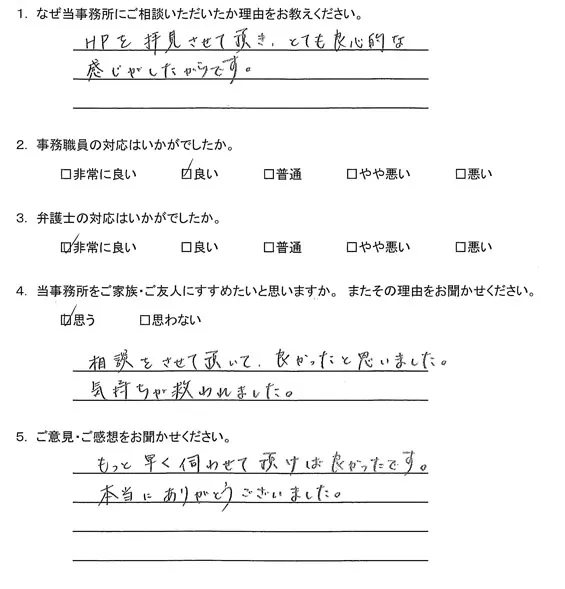 1. なぜ当事務所にご相談いただいたか理由をお教えください。
HPを拝見させて頂き、とても良心的な
感じがしたからです。
2. 事務職員の対応はいかがでしたか。
□非常に良い ☑良い □普通 □やや悪い □悪い
3. 弁護士の対応はいかがでしたか。
☑非常に良い □良い □普通 □やや悪い □悪い
4. 当事務所をご家族・ご友人にすすめたいと思いますか。 またその理由をお聞かせください。
☑思う □思わない
相談をさせて頂いて、良かったと思いました。
気持ちが救われました。
5. ご意見・ご感想をお聞かせください。
もっと早く伺わせて頂けば良かったです。
本当にありがとうございました。